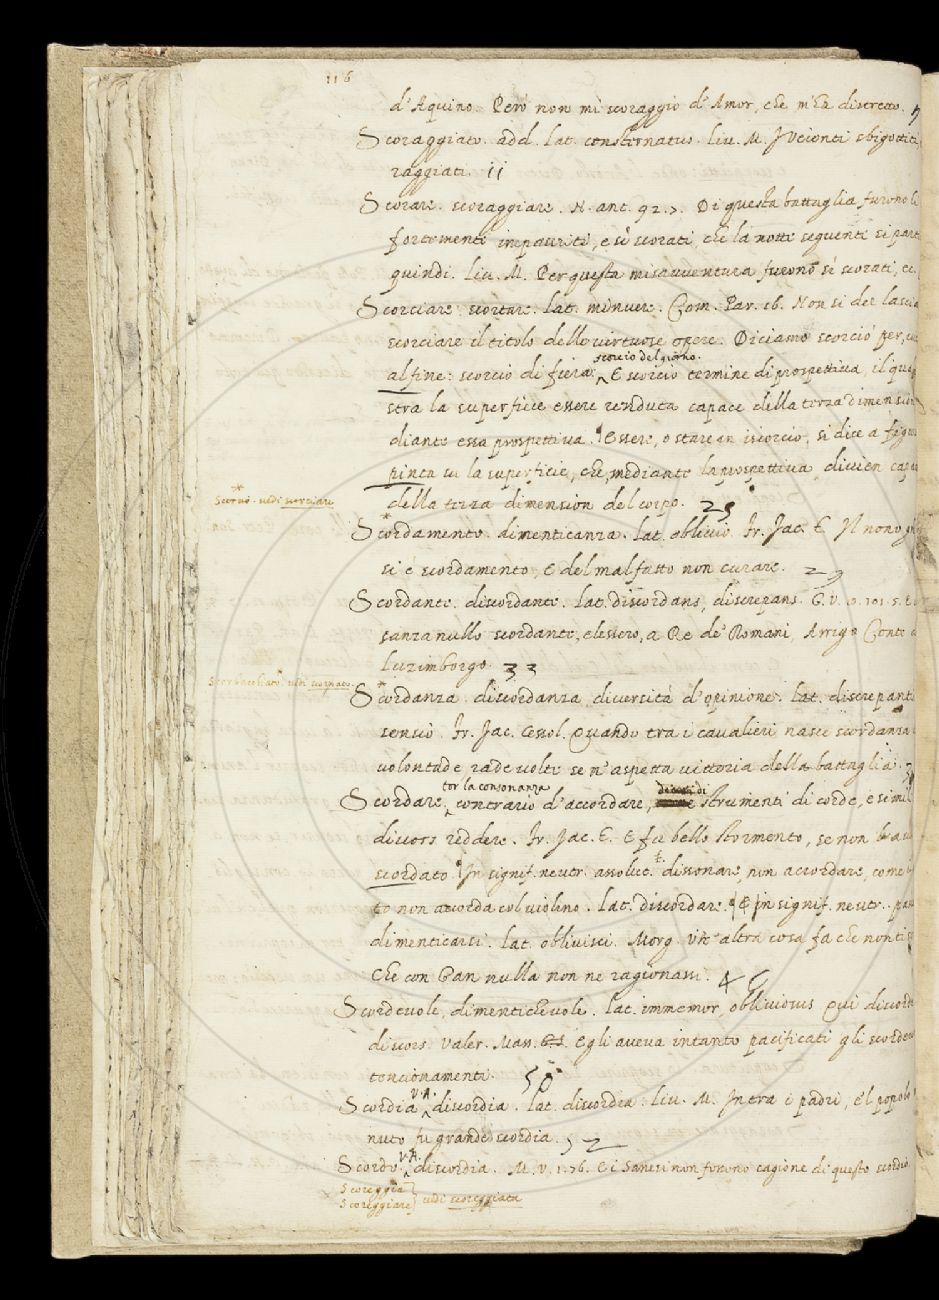 116
d'Aquino. Però non mi scoraggio d'Amor, che m'ha distretto.
Scoraggiato. add. lat. consternatus. liu. M. J Veienti sbigottiti
raggiati. 11
Scorare. scoraggiare. N. ant. 92. 7. Di questa battaglia furono li
fortemente impauriti, e sì scorati, che la notte seguente si part
quindi. liu. M. Per questa misauventura furono sì scorati, ec.
Scorciare. scortare. lat. minuere. Com. Par. 16. Non si dee lascia
scorciare il titolo delle virtuose opere. Diciamo scorcio per,
scorcio del giorno.
al fine: scorcio di fiera. E scorcio termine di prospettiua, il qua
stra la superficie essere renduta capace della terza dimension
diante essa prospettiua. Essere, o stare in iscorcio, si dice a figu
pinta su la superficie, che, mediante la prospettiua, diuien capa
* Scorno. uedi scorciare
della terza dimension del corpo. 25
* Scordamento. dimenticanza. lat. obliuio. fr. Jac. T. Il nono
si è scordamento, E del mal fatto non curare. 29
Scordante. discordante. lat. discordans, discrepans. G. V. 9. 101. 5. E
sanza nullo scordante, elessero, a Re de' Romani, Arrigo Conte
Luzimborgo. 33
uedi scornato.
* Scordanza. discordanza, diuersità d'opinione. lat. discrepant
sensio. fr. Jac. Cessol. Quando tra i caualieri nasce scordanza
volontade, rade volte se n'aspetta vittoria della battaglia.
tor la consonanza
Scordare, contrario d'accordare, strumenti di corde, e simil
discors reddere. fr. Jac. T. E fu bello stormento, se non
scordato. In signif. neutr. assolut. dissonare, non accordare, come
to non accorda col violino. lat. discordare. E in signif. neutr. pa
dimenticarsi. lat. obliuisci. Morg. Un' altra cosa fa che non ti
Che con Gan nulla non ne ragionassi. 46
Scordeuole, dimenticheuole. lat. immemor, obliuiosus Qui discord
discors. Valer. Mass. Egli aueua intanto pacificati gli scordeu
tencionamenti. 50
V.A.
Scordia discordia. lat. discordia. liu. M. Intra i padri, e'l popolo
nuto fu grande scordia. 52
V.A.
Scordo discordia. M. V. 1. 76. E i Sanesi non furono cagione di questo scordio
Scoreggia
Scoreggiare} uedi scoreggiata